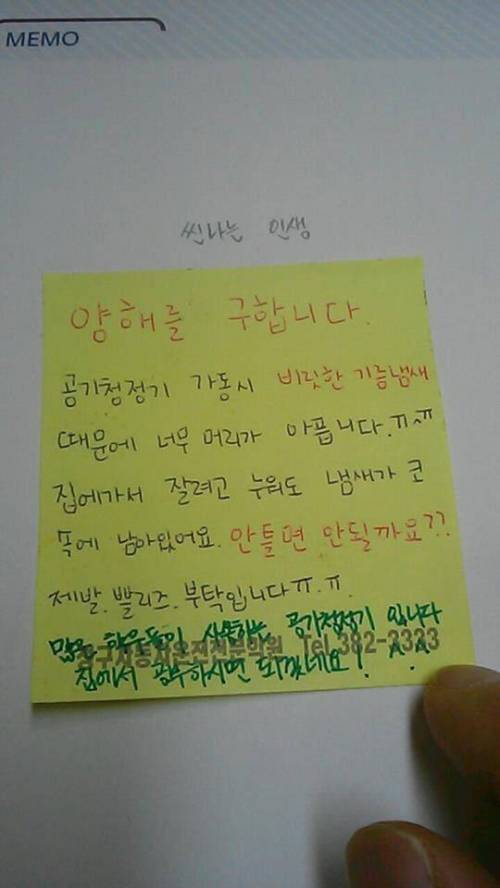 MEMO
씬나는 인생
양해를 구합니다.
공기청정기 가동시 비릿한 기름냄새
때문에 너무 머리가 아픕니다.ㅠ^ㅠ
집에가서 잘려고 누워도 냄새가 코
속에 남아있어요. 안틀면 안될까요??
제발.쁠리즈.부탁입니다ㅠ.ㅠ.
많은 학우들이 사용하는 공기청정기 입니다
자동차운전전문학원 Tel.382-3333
집에서 공부하시면 되겠네요! ^.^